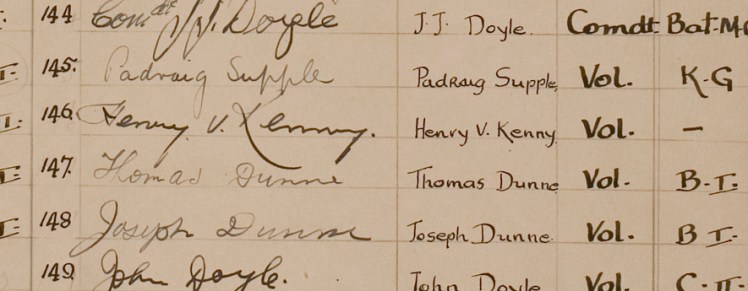 144 Comdt J.J. Doyle J.J. Doyle. Comdt Bat. M.
I. 145. Padraig Supple Padraig Supple Vol. K-G
I. 146 Henry V. Kenny. Henry V. Kenny Vol. —
I. 147. Thomas Dunne Thomas Dunne Vol. B-I.
I. 148 Joseph Dunne Joseph Dunne. Vol. B I.
149. John Doyle. John Doyle Vol. C-II.